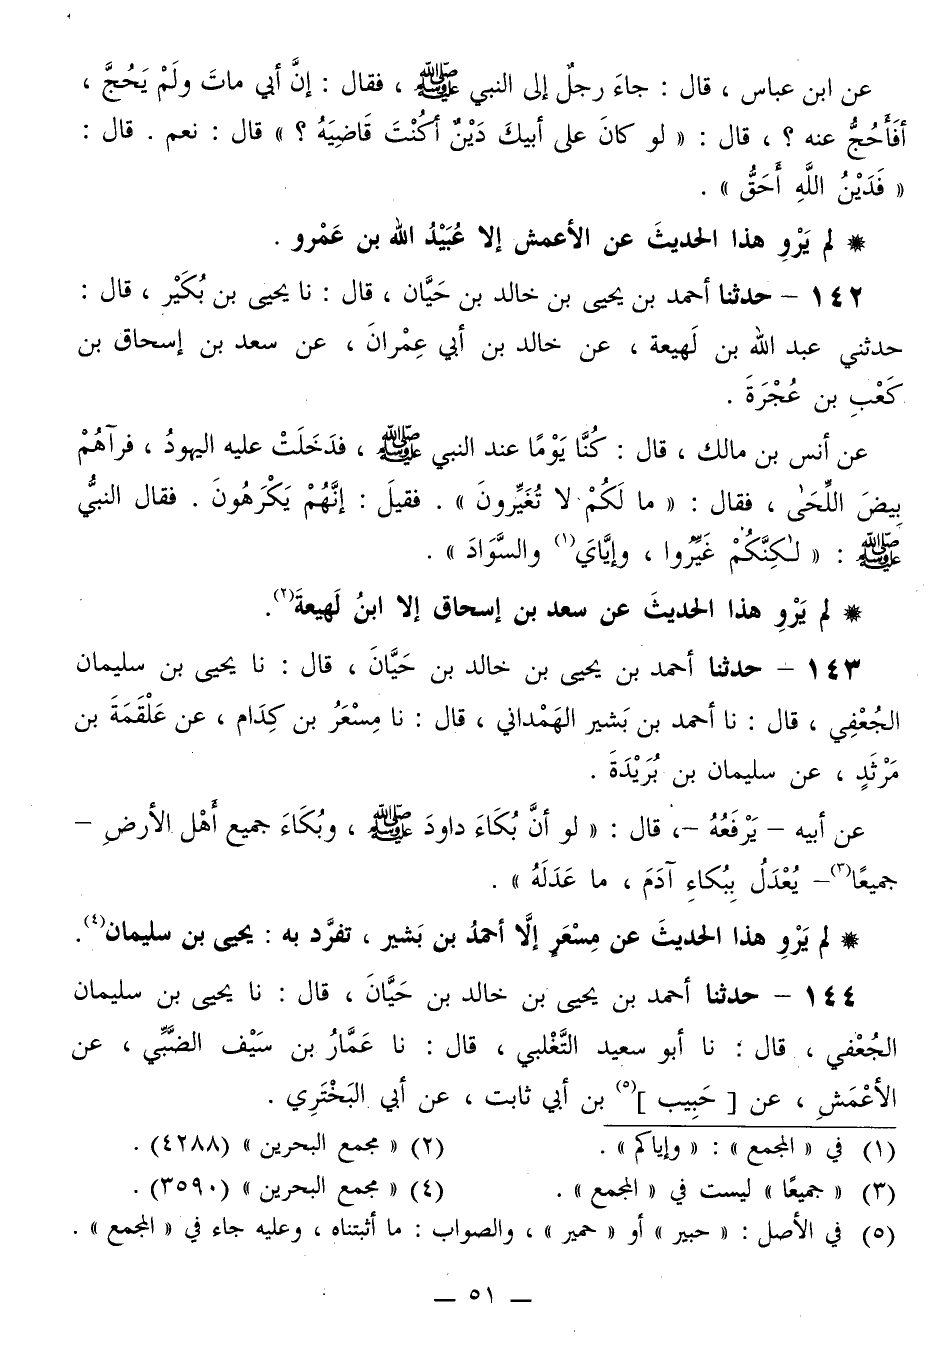 عن ابن عباس ، قال : جاءَ رجلٌ إلى النبي ﷺ ، فقال : إنَّ أبي ماتَ ولَمْ يَحُجَّ ،
أفَأَحُجُّ عنه ؟ ، قال : « لو كانَ على أبيكَ دَيْنٌ أكُنْتَ قَاضِيَهُ ؟ » قال : نعم . قال :
« فَدَيْنُ اللَّهِ أَحَقُّ » .
✷ لم يَرْوِ هذا الحديثَ عن الأعمش إلا عُبَيْدُ الله بن عَمْرو .
١٤٢ – حدثنا أحمد بن يحيى بن خالد بن حَيَّان ، قال : نا يحيى بن بُكَيْر ، قال :
حدثني عبد الله بن لَهيعة ، عن خالد بن أبي عِمْرانَ ، عن سعد بن إسحاق بن
كَعْبِ بن عُجْرَةَ .
عن أنس بن مالك ، قال : كُنَّا يَوْمًا عند النبي ﷺ ، فدَخَلَتْ عليه اليهودُ ، فرآهُمْ
بِيضَ اللِّحَىٰ ، فقال : « ما لَكُمْ لا تُغَيِّرونَ » . فقيلَ : إنَّهُمْ يَكْرَهُونَ . فقال النبيُّ
ﷺ : « لٰكِنَّكُمْ غَيِّرُوا ، وإيَّايَ(١) والسَّوَادَ » .
✷ لم يَرْوِ هذا الحديثَ عن سعد بن إسحاق إلا ابنُ لَهيعةَ(٢).
١٤٣ – حدثنا أحمد بن يحيى بن خالد بن حَيَّانَ ، قال : نا يحيى بن سليمان
الجُعْفِي ، قال : نا أحمد بن بَشير الهَمْداني ، قال : نا مِسْعَرُ بن كِدَام ، عن عَلْقَمَةَ بن
مَرْثَدٍ ، عن سليمان بن بُرَيْدَةَ .
عن أبيه – يَرْفَعُهُ –، قال : « لو أنَّ بُكَاءَ داودَ ﷺ ، وبُكَاءَ جميع أَهْل الأرضِ –
جميعًا(٣)– يُعْدَلُ بِبُكاءِ آدَمَ ، ما عَدَلَهُ » .
✷ لم يَرْوِ هذا الحديثَ عن مِسْعَرٍ إلَّا أحمدُ بن بَشير ، تفرَّد به : يحيى بن سليمان(٤).
١٤٤ – حدثنا أحمد بن يحيى بن خالد بن حَيَّانَ ، قال : نا يحيى بن سليمان
الجُعْفي ، قال : نا أبو سعيد التَّغْلبي ، قال : نا عَمَّارُ بن سَيْف الضَّبِّي ، عن
الأعْمَشِ ، عن [ حَبِيب ](٥) بن أبي ثابت ، عن أبي البَخْتَرِي .
(١) في « المجمع » : « وإياكم » . (٢) « مجمع البحرين » (٤٢٨٨) .
(٣) « جميعًا » ليست في « المجمع » . (٤) « مجمع البحرين » (٣٥٩٠) .
(٥) في الأصل : « حبير » أو « حمير » ، والصواب : ما أثبتناه ، وعليه جاء في « المجمع » .
— ٥١ —